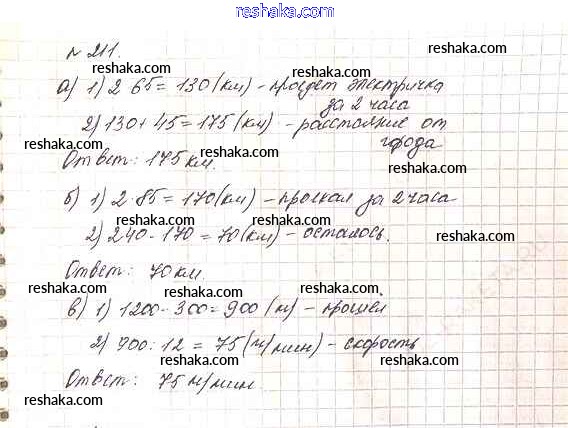 reshaka.com
№ 211.
reshaka.com
reshaka.com
а) 1) 2·65=130(км) - проедет электричка
за 2 часа
reshaka.com
reshaka.com
2) 130+45=175(км) - расстояние от
города
reshaka.com
reshaka.com
Ответ: 175 км.
reshaka.com
б) 1) 2·85=170(км) - проехал за 2 часа
reshaka.com
reshaka.com
reshaka.com
2) 240-170=70(км) - осталось.
reshaka.com
Ответ: 70 км.
reshaka.com
reshaka.com
reshaka.com
в) 1) 1200-300=900(м) - прошёл
2) 900:12=75(м/мин) - скорость
reshaka.com
reshaka.com
Ответ: 75 м/мин.
reshaka.com
reshaka.com